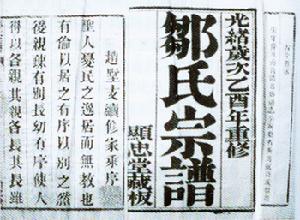 光緒歲次乙酉年重修
鄒氏宗譜
顯忠堂藏板
趙墅支續修家乘序
聖人憂民之逸居而無教也
有倫以居之有序以別之
後親疎有別長幼有序使人
得以各親其親各長其長雖